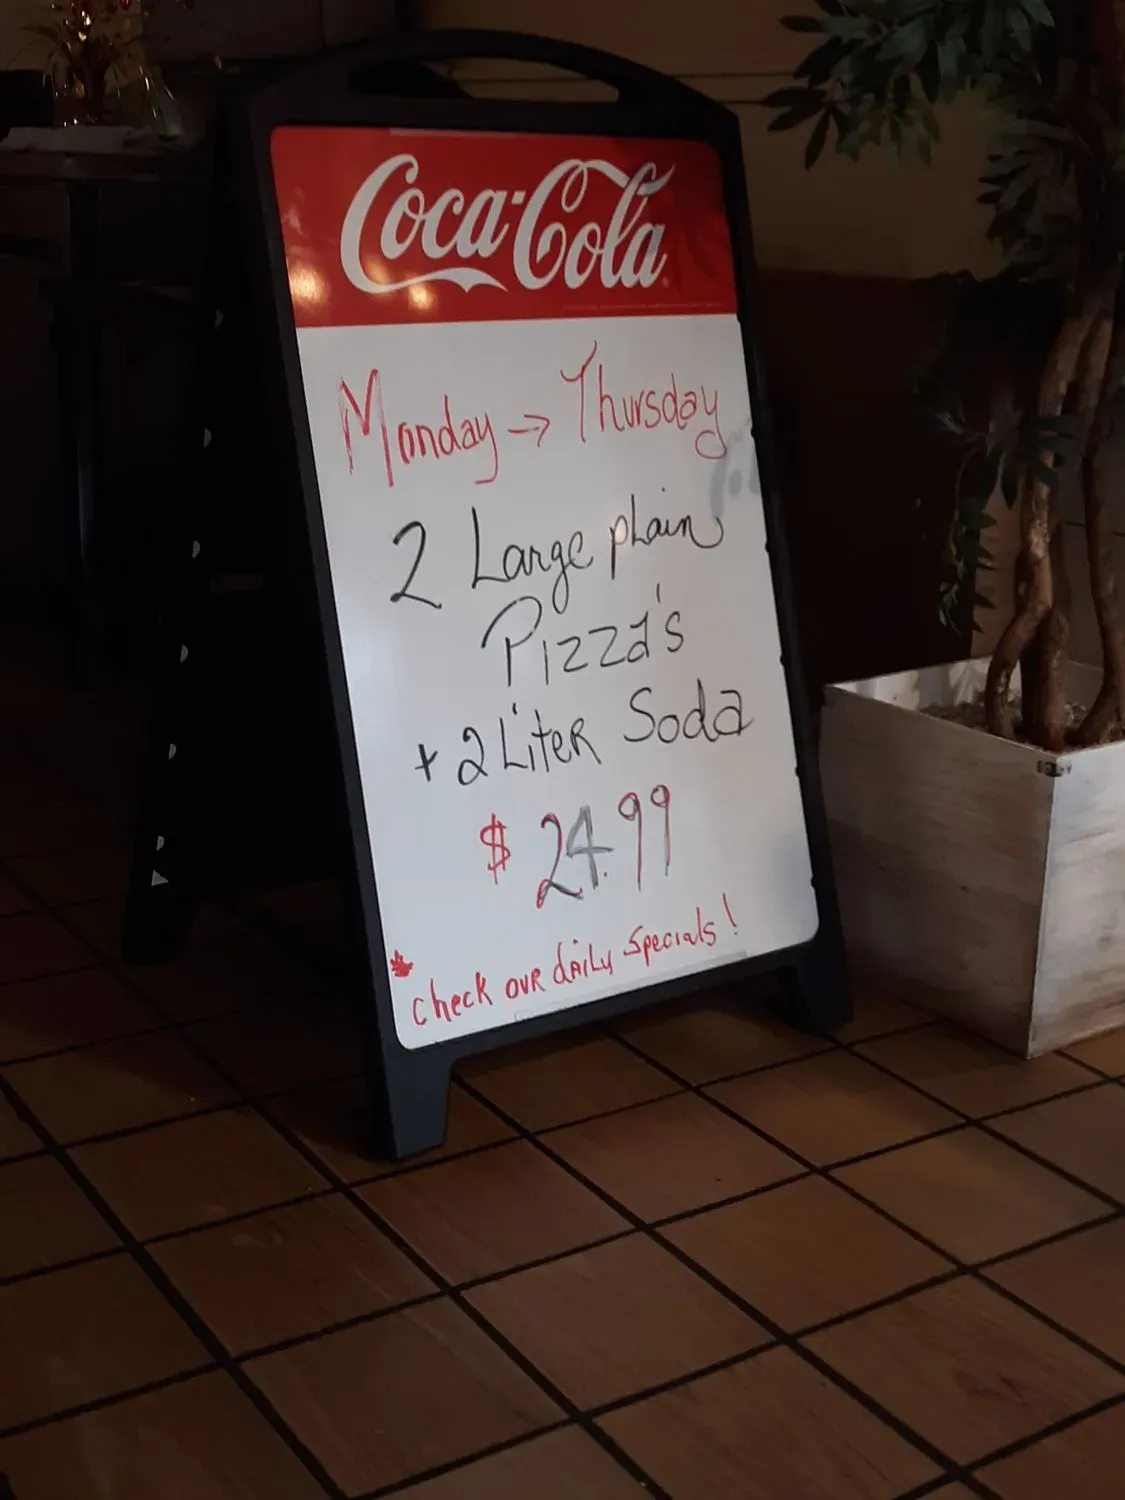 Coca-Cola
Monday → Thursday
2 Large plain
Pizza's
+ 2 Liter Soda
$ 24.99
* check our daily specials!